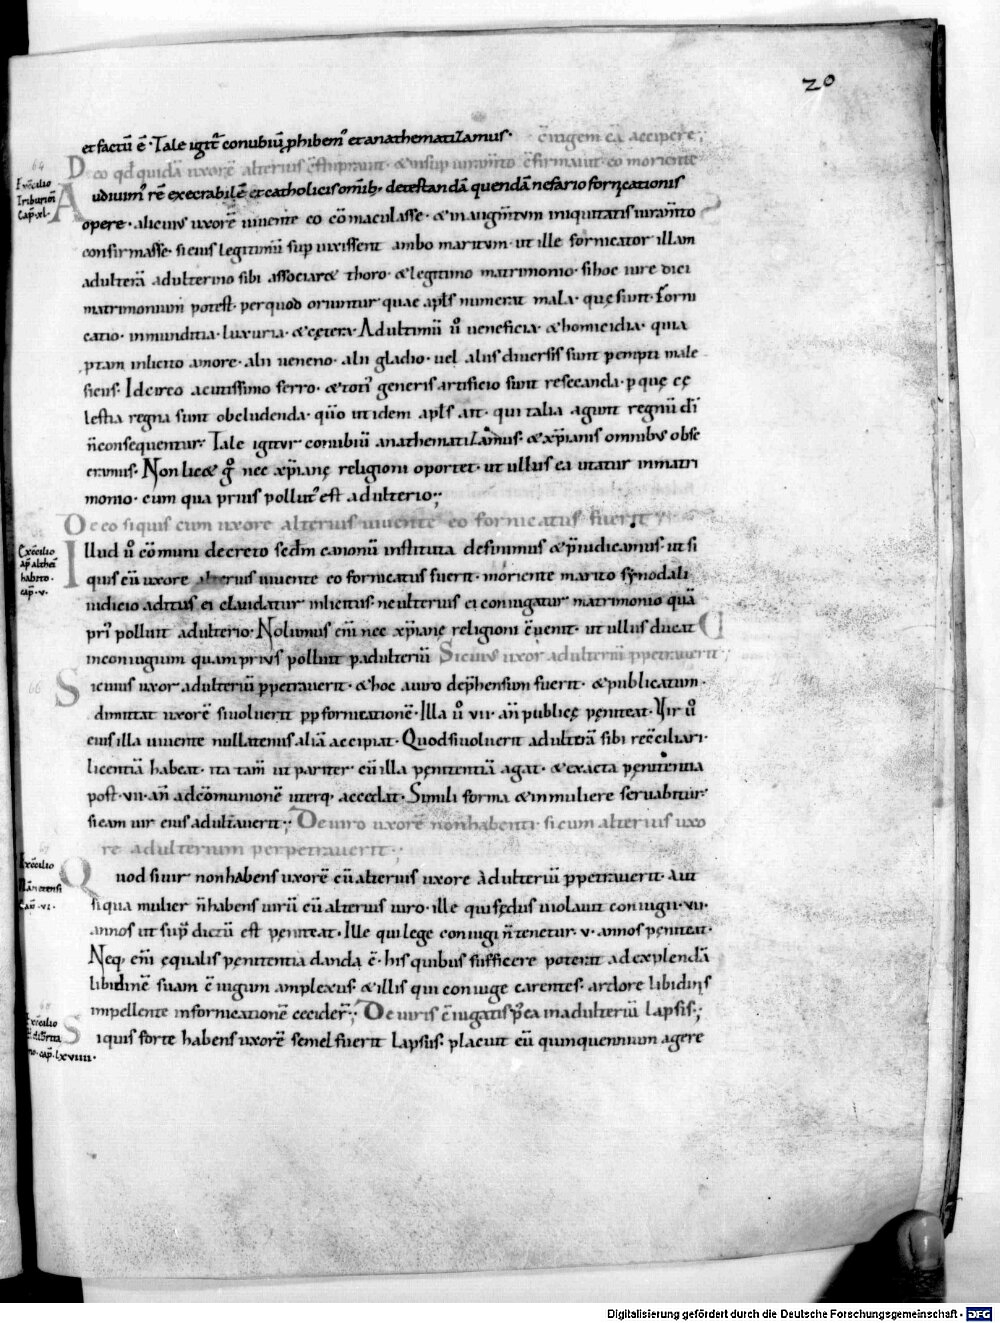 20
et factū ē · Tale igit͛ conubiū ꝓhibem᷒ et anathematizamus · c̄iugem eā accipere ;
De eo qd quidā uxorē alterius c̄stuprauit · & insup iuram̄to c̄firmauit eo moriente
Ex c̄cilio
Triburien̄
Cap̄. xl.
Audiuim᷒ rē execrabilē et catholicis om̄ib; detestandā quendā nefario fornicationis
opere · alicuius uxorē uiuente eo cōmaculasse · & in augm̄tum iniquitatis iuram̄to
confirmasse · si eius legitimū sup uixissent ambo maritum · ut ille fornicator illam
adulterā adulterino sibi associar& thoro · & legitimo matrimonio · si hoc iure dici
matrimonium potest · per quod oriuntur quae apl̄s numerat mala · quę sunt · forni
catio · inmunditia · luxuria · & cętera · Adultimū ū ueneficia · & homicidia · quia
ꝓ tam inlicito amore · alii ueneno · alii gladio · uel aliis diuersis sunt pempti male
ficiis · Idcirco acutissimo ferro · & toti᷒ generis artificio sunt resecanda · p quę cę
lestia regna sunt obcludenda · quō ut idem apl̄s ait · qui talia agunt regnū dī
n̄ consequentur · Tale igitur conubiū anathematizamus · & xp̄ianis omnibus obse
cramus · Non lic& gͦ nec xp̄ianę religioni oportet · ut ullus ea utatur in matri
monio · cum qua prius pollut᷒ est adulterio ;
De eo si quis cum uxore alterius uiuente eo fornicatus fuerit
Ex c̄cilio
ap̄ altheī
habito ·
cap̄ · v ·
Illud ū cōmuni decreto sedm̄ canonū instituta definimus & p̄iudicamus · ut si
quis cū uxore alterius uiuente eo fornicatus fuerit · moriente marito synodali
iudicio aditus ei claudatur inlicitus · ne ulterius ei coniugatur matrimonio quā
pri᷒ polluit adulterio · Nolumus em̄ nec xp̄ianę religioni c̄uenit · ut ullus ducat
in coniugium quam prius polluit p adulteriū Si cuius uxor adulteriū ppetrauerit ;
66
Si cuius uxor adulteriū ppetrauerit · & hoc a uiro dep̄hensum fuerit · & publicatum ·
dimittat uxorē si uoluerit pp fornicationē · Illa ū · vii · an̄ publicę pęniteat · Vir ū
eius illa uiuente nullatenus aliā accipiat · Quod si uoluerit adulterā sibi rec̄ciliari ·
licentiā habeat · ita tam̄ ut pariter cū illa pęnitentiā agat · & exacta pęnitentia
post · vii · an̄ ad cōmunionē uterq; accedat · Simili forma & in muliere seruabitur
si eam uir eius adult̄auerit ; De uiro uxorē non habenti · si cum alterius uxo
re adulterium perpetrauerit ;
Ex c̄cilio
Nān&ensi
Cap̄ · vi ·
Quod si uir non habens uxorē cū alterius uxore adulteriū ppetrauerit · aut
si qua mulier n̄ habens uirū cū alterius uiro · ille qui sędus uiolauit coniugii · vii ·
annos ut sup̄ dictū est pęniteat · Ille qui lege coniugi n̄ tenetur · v · annos pęniteat ·
Neq; em̄ ęqualis pęnitentia danda ē · his quibus sufficere poterit ad explendā
libidinē suam c̄iugum amplexus · & illis qui coniuge carentes · ardore libidinis
impellente in fornicationē cecider̄ ; De uiris c̄iugatis p̄ea in adulteriū lapsis ;
cap̄. lxviiii ·
Si quis forte habens uxorē semel fuerit lapsus · placuit eū quinquennium agere
Digitalisierung gefördert durch die Deutsche Forschungsgemeinschaft - DFG